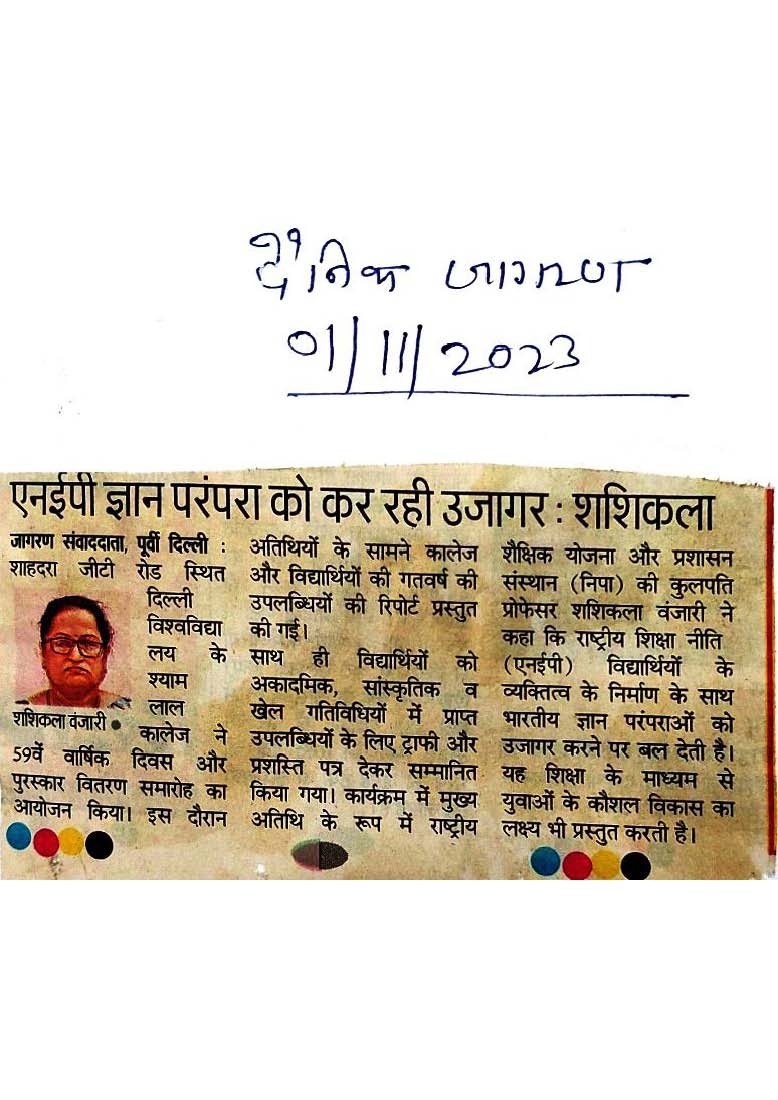 दैनिक जागरण
01/11/2023
एनईपी ज्ञान परंपरा को कर रही उजागर : शशिकला
जागरण संवाददाता, पूर्वी दिल्ली :
शाहदरा जीटी रोड स्थित
दिल्ली
विश्वविद्या
लय के
श्याम
लाल
कालेज ने
शशिकला वंजारी ●
59वें वार्षिक दिवस और
पुरस्कार वितरण समारोह का
आयोजन किया। इस दौरान
अतिथियों के सामने कालेज
और विद्यार्थियों की गतवर्ष की
उपलब्धियों की रिपोर्ट प्रस्तुत
की गई।
साथ ही विद्यार्थियों को
अकादमिक, सांस्कृतिक व
खेल गतिविधियों में प्राप्त
उपलब्धियों के लिए ट्राफी और
प्रशस्ति पत्र देकर सम्मानित
किया गया। कार्यक्रम में मुख्य
अतिथि के रूप में राष्ट्रीय
शैक्षिक योजना और प्रशासन
संस्थान (निपा) की कुलपति
प्रोफेसर शशिकला वंजारी ने
कहा कि राष्ट्रीय शिक्षा नीति
(एनईपी) विद्यार्थियों के
व्यक्तित्व के निर्माण के साथ
भारतीय ज्ञान परंपराओं को
उजागर करने पर बल देती है।
यह शिक्षा के माध्यम से
युवाओं के कौशल विकास का
लक्ष्य भी प्रस्तुत करती है।